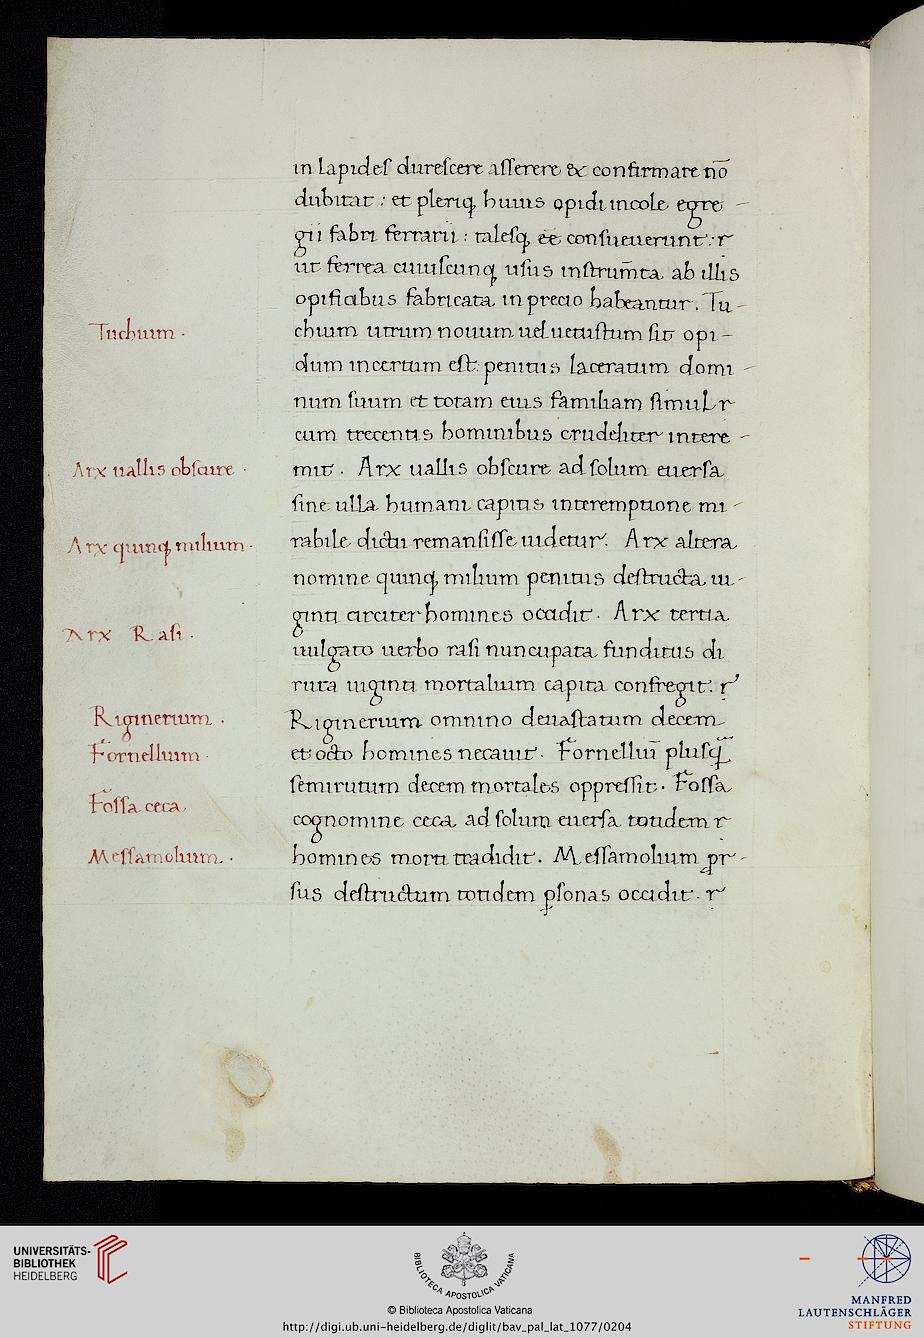 in lapides durescere asserere & confirmare nō
dubitat : et pleriq; huius opidi incole egre -
gii fabri ferrarii : talesq; eē consueuerunt : r
ut ferrea cuiuscunq; usus instrum̄ta ab illis
opificibus fabricata in precio habeantur. Tu -
Tuchium .
chium utrum nouum uel uetustum sit opi -
dum incertum est: penitus laceratum domi -
num suum et totam eius familiam simul r
cum trecentis hominibus crudeliter intere -
Arx uallis obscure .
mit . Arx uallis obscure ad solum euersa
sine ulla humani capitis interemptione mi -
Arx quinq; milium .
rabile dictu remansisse uidetur . Arx altera
nomine quinq; milium penitus destructa ui -
ginti circiter homines occidit . Arx tertia
Arx Rasi .
uulgato uerbo rasi nuncupata funditus di
ruta uiginti mortalium capita confregit : r
Riginerium .
Riginerium omnino deuastatum decem
Fornellium .
et octo homines necauit . Fornelliū plusq̄
semirutum decem mortales oppressit . Fossa
Fossa ceca .
cognomine ceca ad solum euersa totidem r
Messamolium .
homines morti tradidit . Messamolium ꝓr -
sus destructum totidem ꝑsonas occidit . r
UNIVERSITÄTS-
BIBLIOTHEK
HEIDELBERG
BIBLIOTECA APOSTOLICA VATICANA
© Biblioteca Apostolica Vaticana
http://digi.ub.uni-heidelberg.de/diglit/bav_pal_lat_1077/0204
MANFRED
LAUTENSCHLÄGER
STIFTUNG